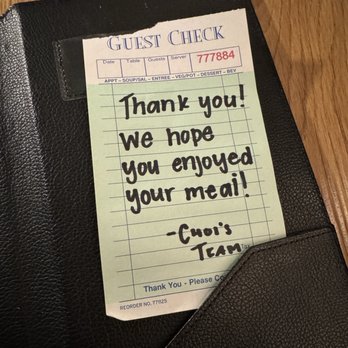 GUEST CHECK
Date Table Guests Server 777884
APPT - SOUP/SAL - ENTREE - VEG/POT - DESSERT - BEV
Thank you!
we hope
you enjoyed
your meal!
-CHOI'S
TEAM
Thank You - Please Co
REORDER NO. 77025